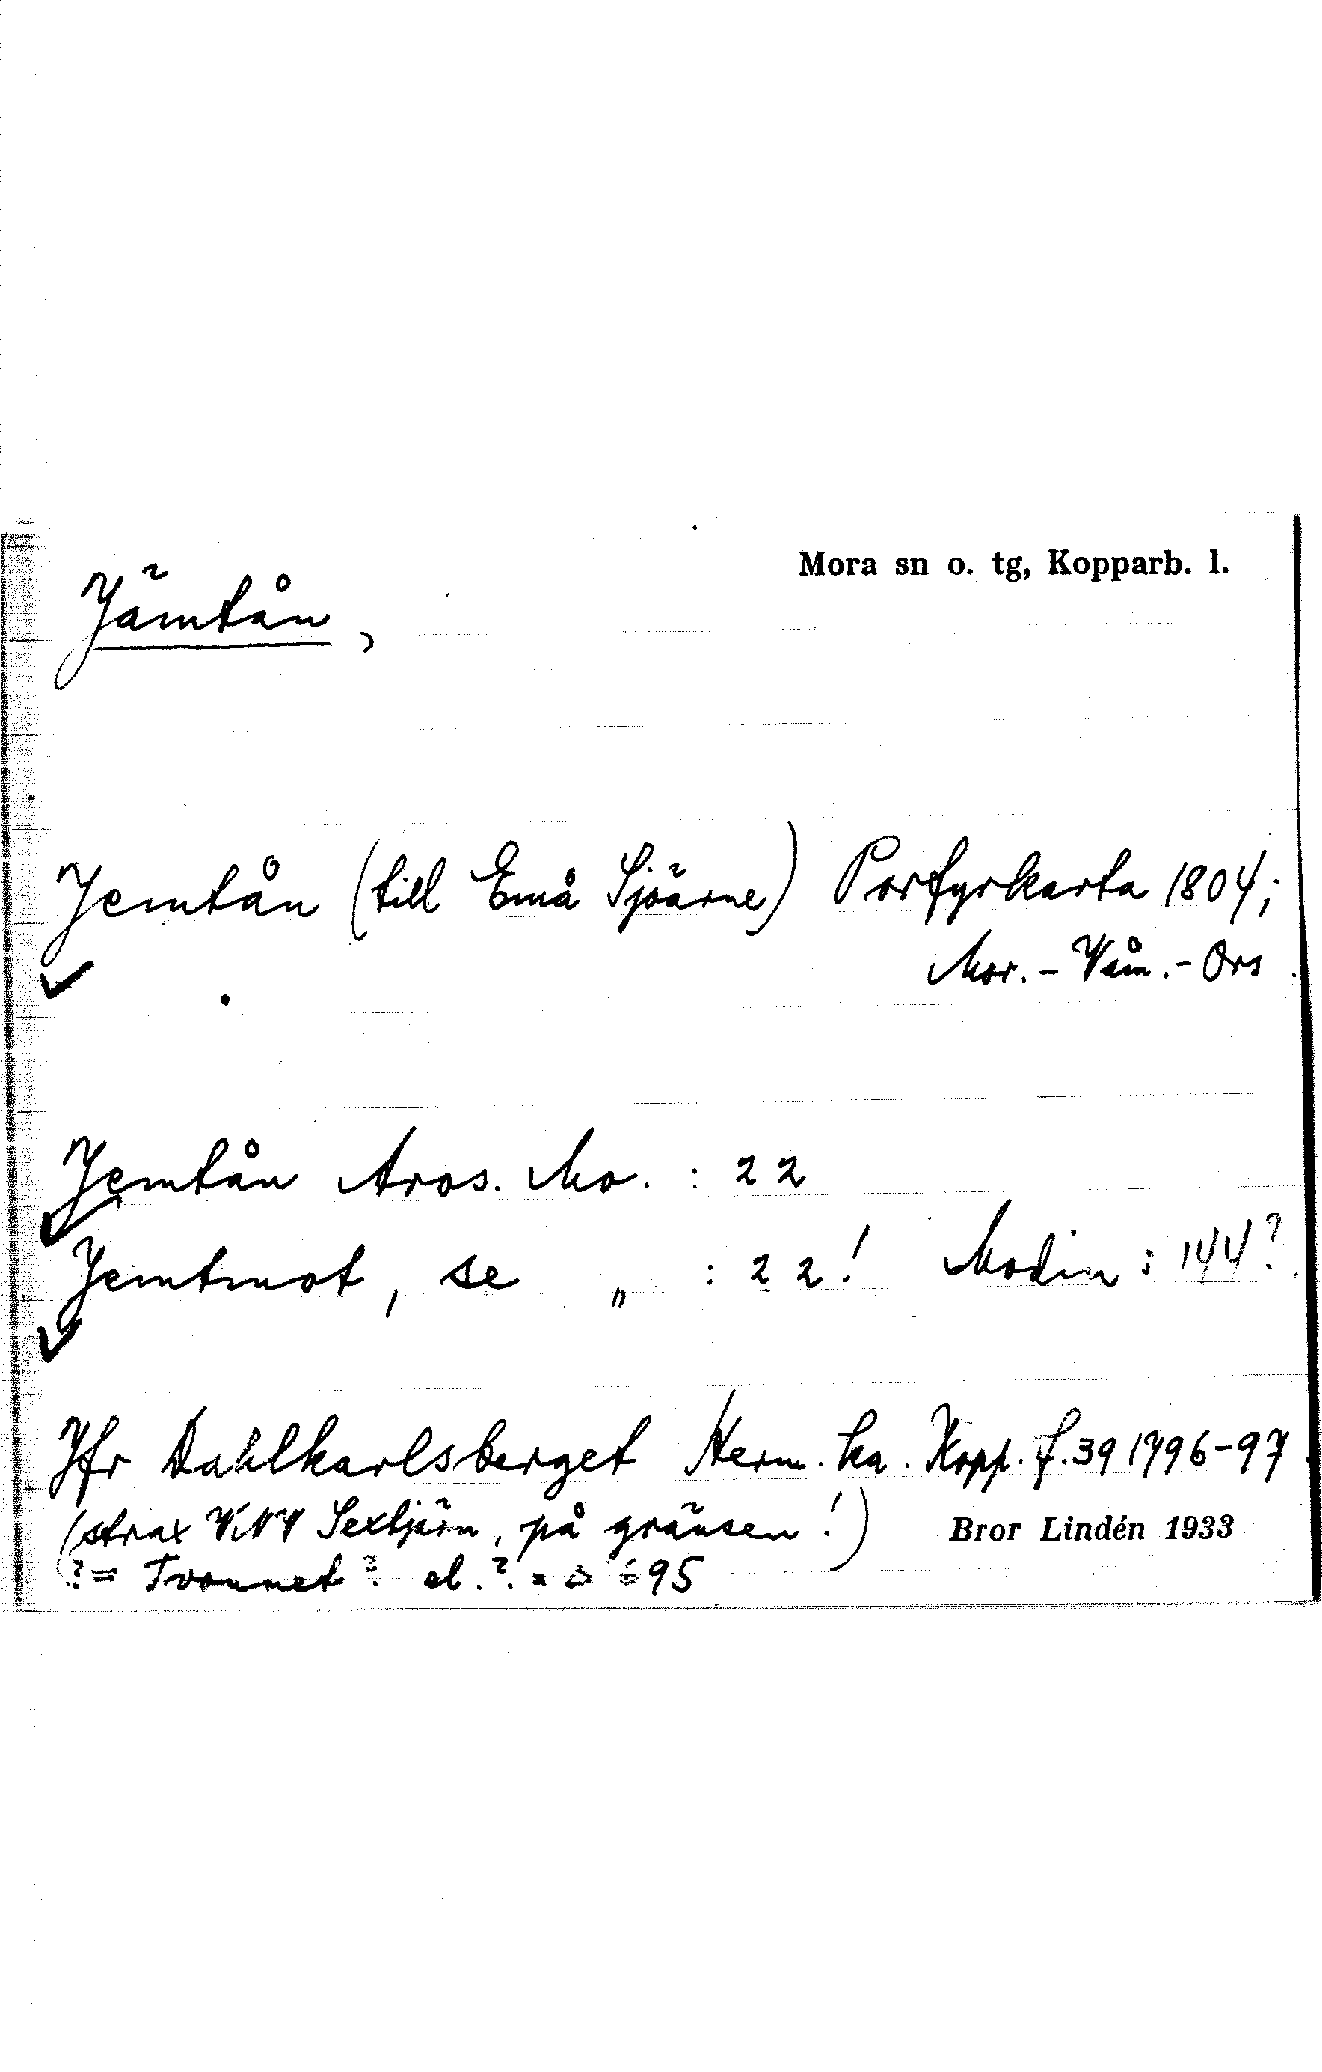 Mora sn o. tg, Kopparb. l.
Jämtån,
Jemtån (till Emå Sjöarne) Porfyrkarta 1804;
Mor. - Våm. - Ors
Jemtån Aros. Mo. : 22
Jemtmot, se „ : 22! Modin : 144?
Jfr Dahlkarlsberget Herm. ka. Kopp. f. 39 1796-97
(strax VNV Sextjärn, på gränsen!)
Bror Lindén 1933
?= Tvonnet? el. ? = 95